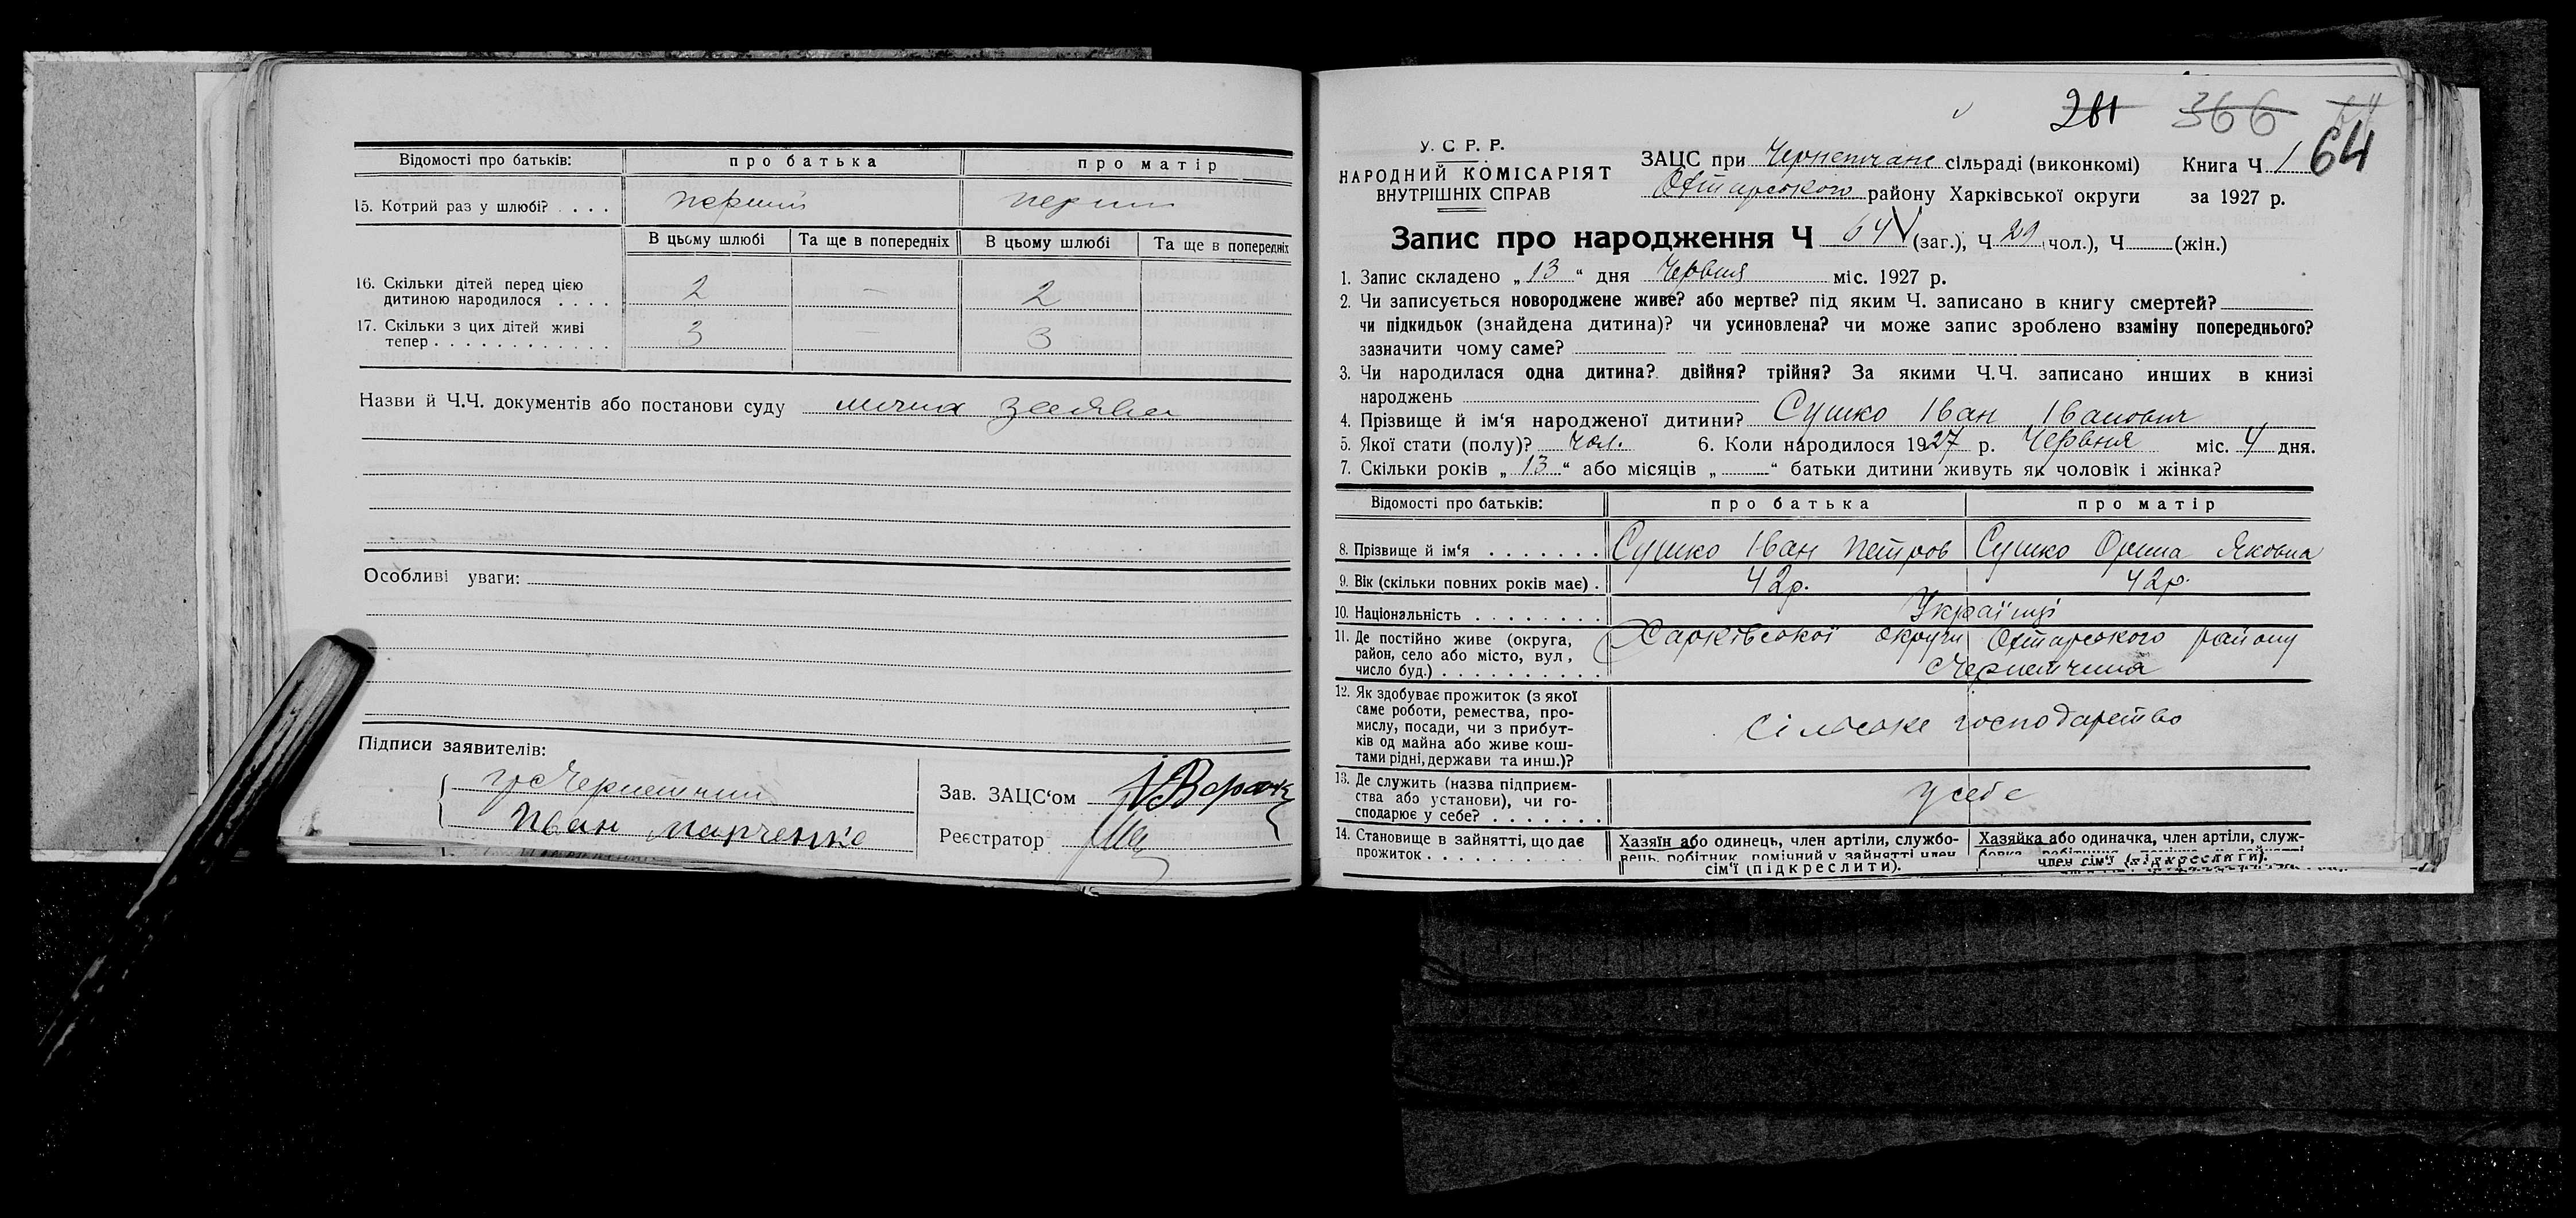 Відомості про батьків: про батька про матір
15. Котрий раз у шлюбі? . . . . перший перши
В цьому шлюбі Та ще в попередніх В цьому шлюбі Та ще в попередніх
16. Скільки дітей перед цією
дитиною народилося . . . . 2 — 2
17. Скільки з цих дітей живі
тепер . . . . . . . . . . . . 3 — 3
Назви й Ч.Ч. документів або постанови суду лична заява
Особливі уваги:
Підписи заявителів:
Іван Марченко
Зав. ЗАЦС‘ом
Реєстратор
281 366 64
64
У. С. Р. Р.
НАРОДНИЙ КОМІСАРІЯТ
ВНУТРІШНІХ СПРАВ
ЗАЦС при сільраді (виконкомі) Книга Ч 1
Охтирського району Харківської округи за 1927 р.
Запис про народження Ч 64 (заг.), Ч 29 (чол.), Ч (жін.)
1. Запис складено „ 13 “ дня Червня міс. 1927 р.
2. Чи записується новороджене живе? або мертве? під яким Ч. записано в книгу смертей?
чи підкидьок (знайдена дитина)? чи усиновлена? чи може запис зроблено взаміну попереднього?
зазначити чому саме?
3. Чи народилася одна дитина? двійня? трійня? За якими Ч.Ч. записано инших в книзі
народжень
4. Прізвище й ім‘я народженої дитини? Сушко Іван Іванович
5. Якої стати (полу)? чол. 6. Коли народилося 1927 р. Червня міс. 4 дня.
7. Скільки років „ 13 “ або місяців „ “ батьки дитини живуть як чоловік і жінка?
Відомості про батьків: про батька про матір
8. Прізвище й ім‘я . . . . . . . Сушко Іван Петров Сушко Орина Яковна
9. Вік (скільки повних років має) . 42р. 42р.
10. Національність . . . . . . . . Українці
11. Де постійно живе (округа, Харківської округи Охтирського району
район, село або місто, вул., Чернетчина
число буд.) . . . . . . . . . .
12. Як здобуває прожиток (з якої
саме роботи, ремества, про-
мислу, посади, чи з прибут-
ків од майна або живе кош-
тами рідні, держави та инш.)?
сільське господарство
13. Де служить (назва підприєм-
ства або установи), чи го-
сподарює у себе? . . . . . . .
у себе
14. Становище в зайнятті, що дає
прожиток . . . . . . . . . .
Хазяїн або одинець, член артіли, службо-
вець, робітник, помічний у зайнятті член
сім‘ї (підкреслити).
Хазяйка або одиначка, член артіли, служ-
член сім‘ї (підкреслити).